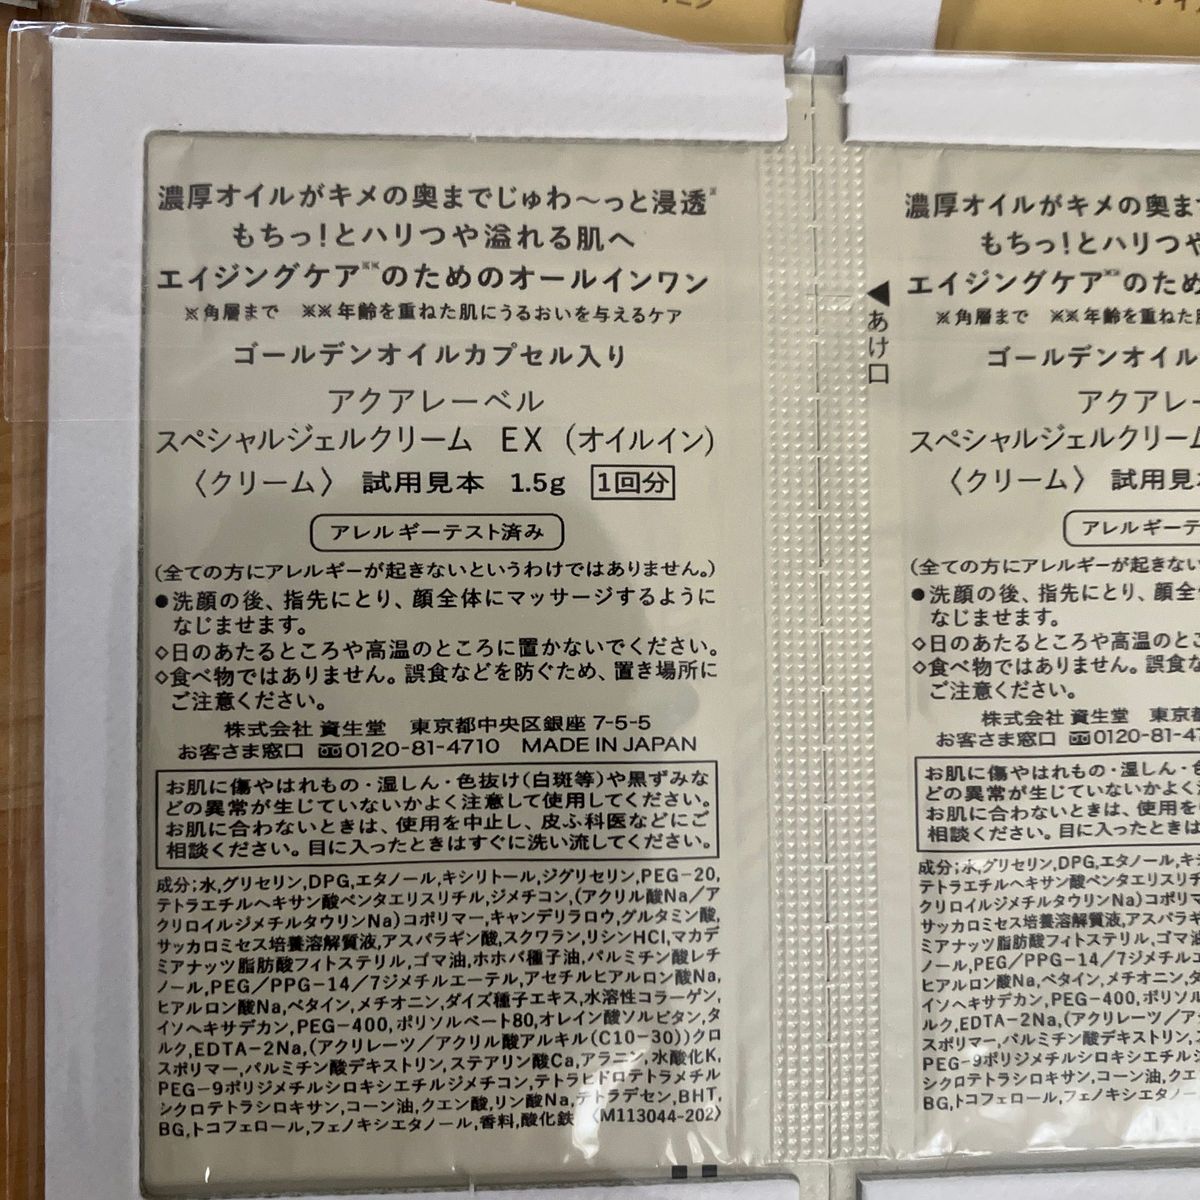 濃厚オイルがキメの奥までじゅわ〜っと浸透※
もちっ!とハリつや溢れる肌へ
エイジングケア※※のためのオールインワン
※角層まで ※※年齢を重ねた肌にうるおいを与えるケア
ゴールデンオイルカプセル入り
アクアレーベル
スペシャルジェルクリーム EX (オイルイン)
〈クリーム〉 試用見本 1.5g 1回分
アレルギーテスト済み
(全ての方にアレルギーが起きないというわけではありません。)
●洗顔の後、指先にとり、顔全体にマッサージするように
なじませます。
◇日のあたるところや高温のところに置かないでください。
◇食べ物ではありません。誤食などを防ぐため、置き場所に
ご注意ください。
株式会社 資生堂 東京都中央区銀座 7-5-5
お客さま窓口 0120-81-4710 MADE IN JAPAN
お肌に傷やはれもの・湿しん・色抜け(白斑等)や黒ずみな
どの異常が生じていないかよく注意して使用してください。
お肌に合わないときは、使用を中止し、皮ふ科医などにご
相談ください。目に入ったときはすぐに洗い流してください。
成分;水,グリセリン,DPG,エタノール,キシリトール,ジグリセリン,PEG-20,
テトラエチルヘキサン酸ペンタエリスリチル,ジメチコン,(アクリル酸Na/ア
クリロイルジメチルタウリンNa)コポリマー,キャンデリラロウ,グルタミン酸,
サッカロミセス培養溶解質液,アスパラギン酸,スクワラン,リシンHCl,マカデ
ミアナッツ脂肪酸フィトステリル,ゴマ油,ホホバ種子油,パルミチン酸レチ
ノール,PEG/PPG-14/7ジメチルエーテル,アセチルヒアルロン酸Na,
ヒアルロン酸Na,ベタイン,メチオニン,ダイズ種子エキス,水溶性コラーゲン,
イソヘキサデカン,PEG-400,ポリソルベート80,オレイン酸ソルビタン,タ
ルク,EDTA-2Na,(アクリレーツ/アクリル酸アルキル(C10-30))クロ
スポリマー,パルミチン酸デキストリン,ステアリン酸Ca,アラニン,水酸化K,
PEG-9ポリジメチルシロキシエチルジメチコン,テトラヒドロテトラメチル
シクロテトラシロキサン,コーン油,クエン酸,リン酸Na,テトラデセン,BHT,
BG,トコフェロール,フェノキシエタノール,香料,酸化鉄 〈M113044-202〉
◀あけ口
濃厚オイルがキメの奥まで
もちっ!とハリつや
エイジングケア※※のため
※角層まで ※※年齢を重ねた
ゴールデンオイル
アクアレー
スペシャルジェルクリーム
〈クリーム〉 試用見
アレルギーテ
(全ての方にアレルギーが起きない
●洗顔の後、指先にとり、顔全
なじませます。
◇日のあたるところや高温のとこ
◇食べ物ではありません。誤食な
ご注意ください。
株式会社 資生堂 東京
お客さま窓口 0120-81-4
お肌に傷やはれもの・湿しん・
どの異常が生じていないかよく
お肌に合わないときは、使用を
相談ください。目に入ったときは
成分;水,グリセリン,DPG,エタノール,キ
テトラエチルヘキサン酸ペンタエリスリチ
クリロイルジメチルタウリンNa)コポリマ
サッカロミセス培養溶解質液,アスパラ
ミアナッツ脂肪酸フィトステリル,ゴマ油
ノール,PEG/PPG-14/7ジメチルエ
ヒアルロン酸Na,ベタイン,メチオニン,ダ
イソヘキサデカン,PEG-400,ポリソル
ルク,EDTA-2Na,(アクリレーツ/ア
スポリマー,パルミチン酸デキストリン,
PEG-9ポリジメチルシロキシエチルジ
シクロテトラシロキサン,コーン油,クエ
BG,トコフェロール,フェノキシエタノー